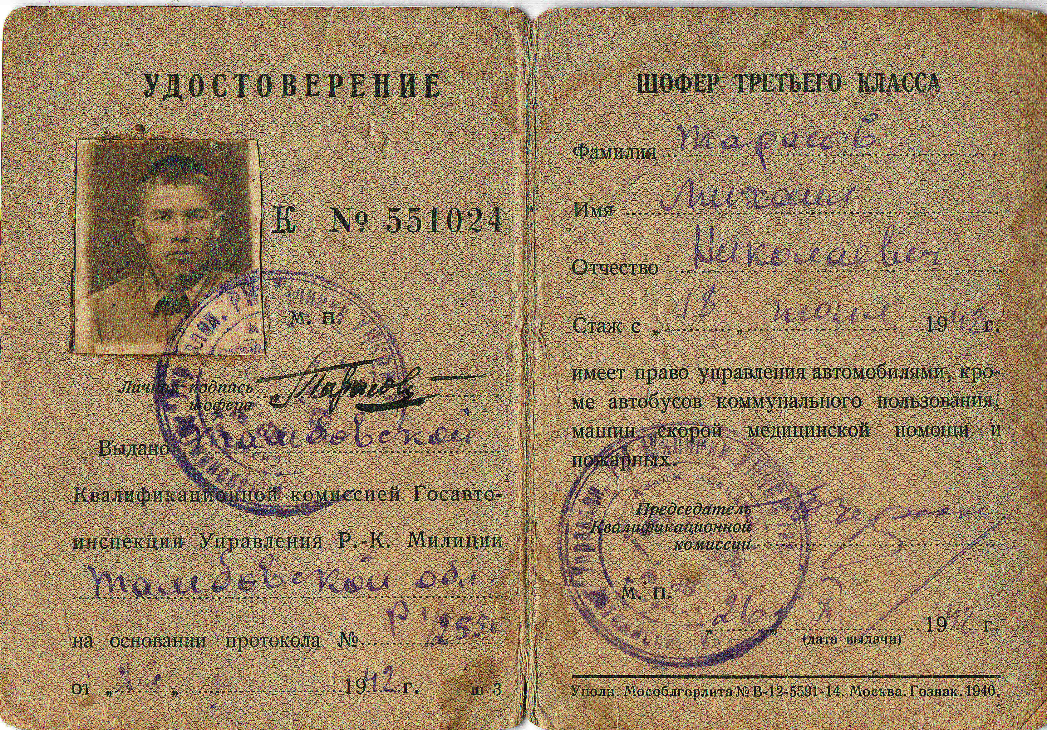 УДОСТОВЕРЕНИЕ
К № 551024
М. П.
Личная подпись
шофера
Выдано Тамбовской
Квалификационной комиссией Госавто-
инспекции Управления Р.-К. Милиции
Тамбовской обл
на основании протокола №
от „ “ 1942 г.
ш 3
ШОФЕР ТРЕТЬЕГО КЛАССА
Фамилия
Имя Михаил
Отчество Николаевич
Стаж с „18 “ 194 г.
имеет право управления автомобилями, кро-
ме автобусов коммунального пользования,
машин скорой медицинской помощи и
пожарных.
Председатель
Квалификационной
комиссии
М. П.
(дата выдачи) 194 г.
Уполн. Мособлгорлита № В-13-5591-14. Москва. Гознак. 1940.